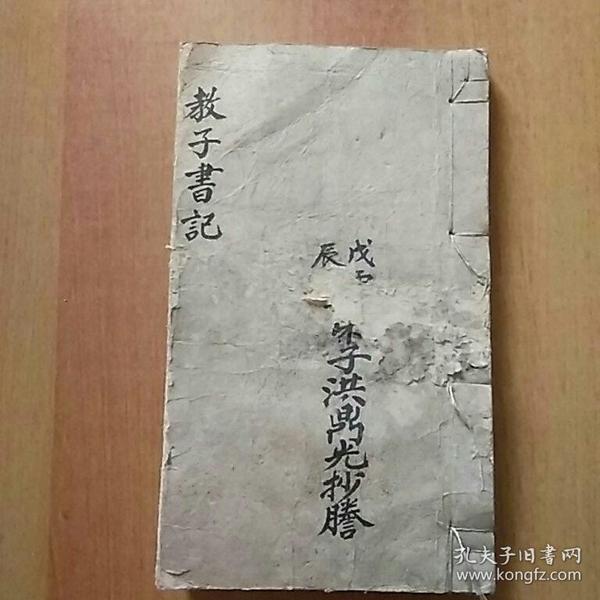 教子書記
戊
辰
季洪鼎光抄謄
孔夫子旧書网
www.kongfz.com